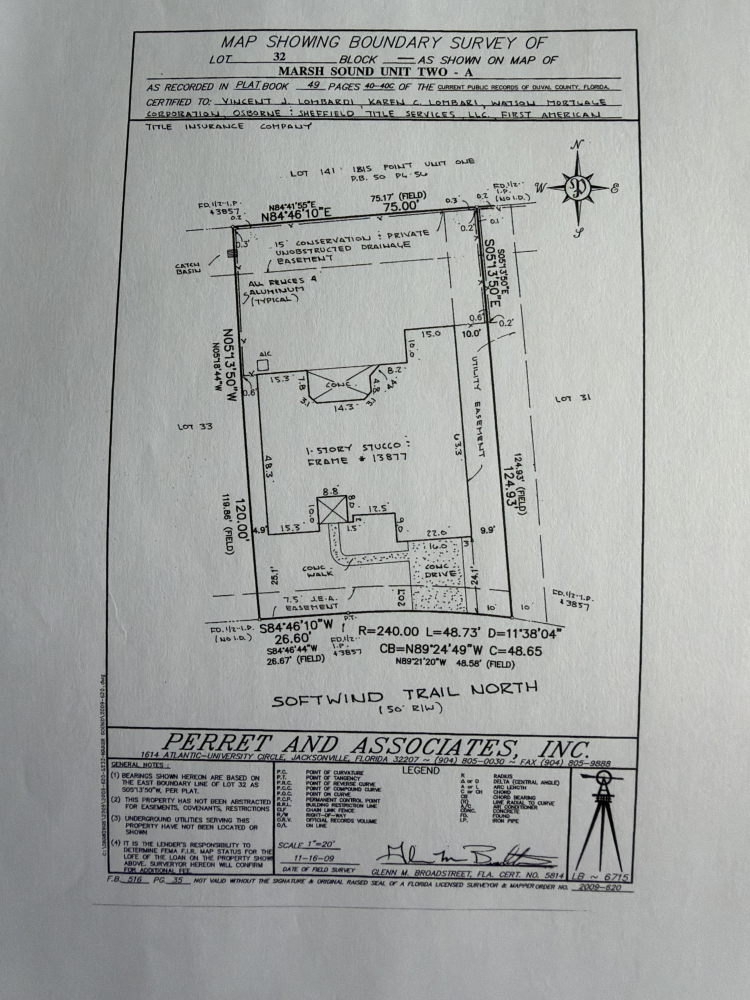 MAP SHOWING BOUNDARY SURVEY OF
LOT 32 BLOCK — AS SHOWN ON MAP OF
MARSH SOUND UNIT TWO - A
AS RECORDED IN PLAT BOOK 49 PAGES 40-40C OF THE CURRENT PUBLIC RECORDS OF DUVAL COUNTY, FLORIDA.
CERTIFIED TO: VINCENT J. LOMBARDI, KAREN C. LOMBARI, WATSON MORTGAGE
CORPORATION, OSBORNE : SHEFFIELD TITLE SERVICES, LLC. FIRST AMERICAN
TITLE INSURANCE COMPANY
LOT 141 · IBIS POINT UNIT ONE
P.B. 50 PG. 56
N
W
E
S
FD. 1/2" I.P.
#3857
N84°41'55"E
N84°46'10"E
75.17' (FIELD)
75.00'
0.3'
0.2'
FD. 1/2" I.P.
(NO I.D.)
0.2
0.3'
0.2'
0.1'
15' CONSERVATION : PRIVATE
UNOBSTRUCTED DRAINAGE
EASEMENT
CATCH
BASIN
ALL FENCES 4'
ALUMINUM
(TYPICAL)
S05°13'50"E
S05°13'50"E
0.6'
0.2'
15.0
10.0'
10.0
N05°13'50"W
N05°18'44"W
A/C
0.6'
15.3'
7.8
CONC.
3.1
14.3'
3.1
4.8
4.4
8.2'
UTILITY EASEMENT
LOT 33
LOT 31
1-STORY STUCCO :
FRAME # 13877
48.3'
63.3'
124.93' (FIELD)
124.93'
120.00'
119.86' (FIELD)
8.8'
10.0
8.0
12.5'
15.3'
1.5'
9.0
22.0
4.9'
9.9'
16.0
3'
CONC
WALK
CONC
DRIVE
25.1'
24.1'
20.7
7.5' J.E.A.
EASEMENT
10'
10'
FD. 1/2" I.P.
#3857
FD. 1/2" I.P.
(NO I.D.)
P.T.
S84°46'10"W
26.60'
S84°46'44"W
26.67' (FIELD)
FD. 1/2"
I.P.
#3857
R=240.00 L=48.73' D=11°38'04"
CB=N89°24'49"W C=48.65
N89°21'20"W 48.58' (FIELD)
SOFTWIND TRAIL NORTH
(50' R/W)
PERRET AND ASSOCIATES, INC.
1614 ATLANTIC-UNIVERSITY CIRCLE, JACKSONVILLE, FLORIDA 32207 ~ (904) 805-0030 ~ FAX (904) 805-9888
GENERAL NOTES :
(1) BEARINGS SHOWN HEREON ARE BASED ON
THE EAST BOUNDARY LINE OF LOT 32 AS
S05°13'50"W, PER PLAT.
(2) THIS PROPERTY HAS NOT BEEN ABSTRACTED
FOR EASEMENTS, COVENANTS, RESTRICTIONS
(3) UNDERGROUND UTILITIES SERVING THIS
PROPERTY HAVE NOT BEEN LOCATED OR
SHOWN
(4) IT IS THE LENDER'S RESPONSIBILITY TO
DETERMINE FEMA F.I.R. MAP STATUS FOR THE
LOFE OF THE LOAN ON THE PROPERTY SHOW
ABOVE. SURVEYOR HEREON WILL CONFIRM
FOR ADDITIONAL FEE.
LEGEND
P.C. POINT OF CURVATURE
P.T. POINT OF TANGENCY
P.R.C. POINT OF REVERSE CURVE
P.C.C. POINT OF COMPOUND CURVE
P.O.C. POINT ON CURVE
P.C.P. PERMANENT CONTROL POINT
B.R.L. BUILDING RESTRICTION LINE
CLF CHAIN LINK FENCE
R/W RIGHT-OF-WAY
O.R.V. OFFICIAL RECORDS VOLUME
O/L ON LINE
R RADIUS
Δ or D DELTA (CENTRAL ANGLE)
A or L ARC LENGTH
C or CH CHORD
CB CHORD BEARING
(R) LINE RADIAL TO CURVE
A/C AIR CONDITIONER
CONC. CONCRETE
FD. FOUND
I.P. IRON PIPE
SCALE 1"=20'
11-16-09
DATE OF FIELD SURVEY
GLENN M. BROADSTREET, FLA. CERT. NO. 5814
LB ~ 6715
F.B. 516 PG 35 NOT VALID WITHOUT THE SIGNATURE & ORIGINAL RAISED SEAL OF A FLORIDA LICENSED SURVEYOR & MAPPER ORDER NO. 2009-620